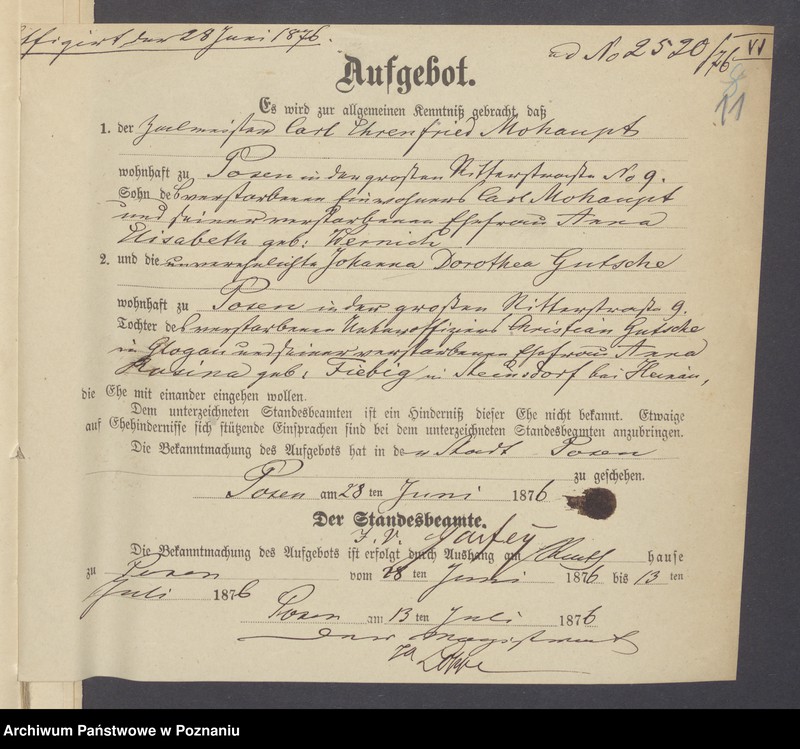 affigirt den 28 Juni 1876.
ad No 2520/76
VI
11
Aufgebot.
Es wird zur allgemeinen Kenntniß gebracht, daß
1. der Zahlmeister Carl Ehrenfried Mohaupt
wohnhaft zu Posen in der großen Ritterstraße No 9.
Sohn des verstorbenen Einwohners Carl Mohaupt
und seiner verstorbenen Ehefrau Anna
Elisabeth geb: Wernich
2. und die unverehelichte Johanna Dorothea Gutsche
wohnhaft zu Posen in der großen Ritterstraße 9.
Tochter des verstorbenen Unteroffiziers Christian Gutsche
in Glogau und seiner verstorbenen Ehefrau Anna
Rosina geb: Fiebig in Steinsdorf bei Hainau,
die Ehe mit einander eingehen wollen.
Dem unterzeichneten Standesbeamten ist ein Hinderniß dieser Ehe nicht bekannt. Etwaige
auf Ehehindernisse sich stützende Einsprachen sind bei dem unterzeichneten Standesbeamten anzubringen.
Die Bekanntmachung des Aufgebots hat in der Stadt Posen
zu geschehen.
Posen am 28 ten Juni 1876
Der Standesbeamte.
J. V.
Die Bekanntmachung des Aufgebots ist erfolgt durch Aushang am Rath hause
zu Posen vom 28 ten Juni 1876 bis 13 ten
Juli 1876
Posen am 13 ten Juli 1876
Der Magistrat
Archiwum Państwowe w Poznaniu